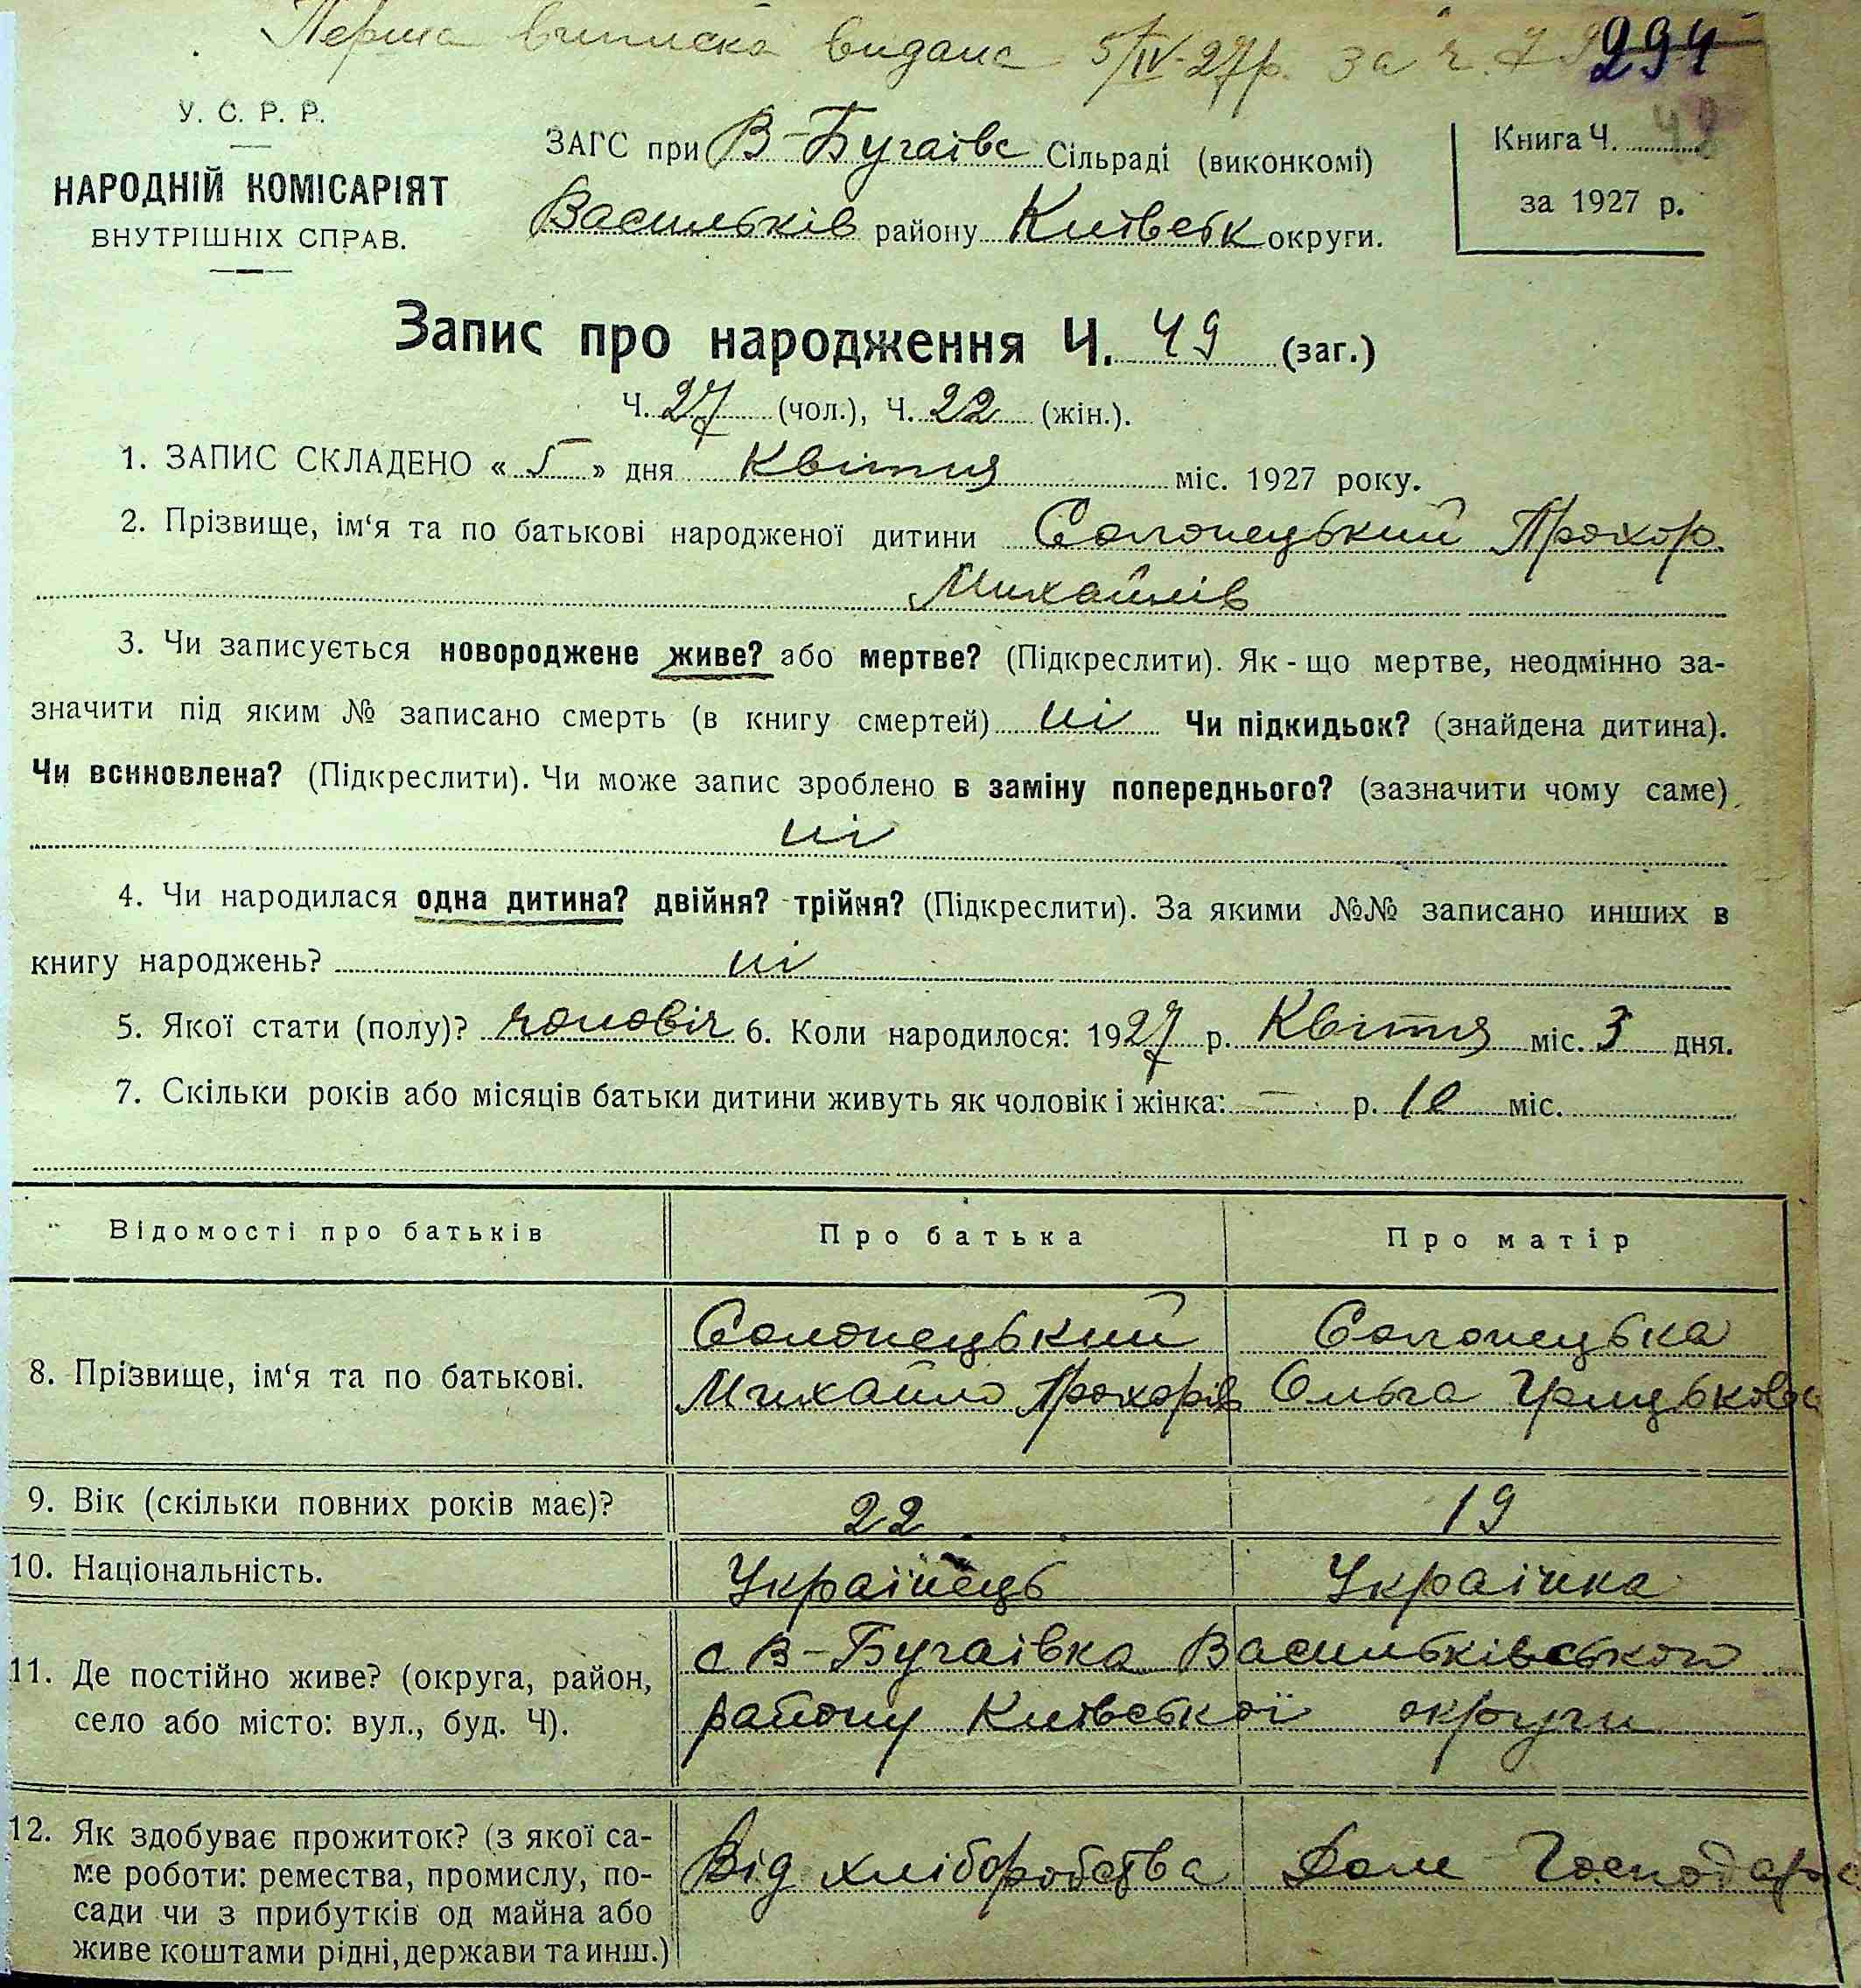 Перша виписка видана 5/IV-27р. за ч.
294
У. С. Р. Р.
НАРОДНІЙ КОМІСАРІЯТ
ВНУТРІШНІХ СПРАВ.
ЗАГС при В-Бугаївс Сільраді (виконкомі)
Васильків району Київськ округи.
Книга Ч.
за 1927 р.
Запис про народження Ч. 49 (заг.)
Ч. 27 (чол.), Ч. 22 (жін.).
1. ЗАПИС СКЛАДЕНО « 5 » дня Квітня міс. 1927 року.
2. Прізвище, ім‘я та по батькові народженої дитини Солонецький Прохор
Михайлів
3. Чи записується новороджене живе? або мертве? (Підкреслити). Як-що мертве, неодмінно за-
значити під яким № записано смерть (в книгу смертей) ні Чи підкидьок? (знайдена дитина).
Чи всиновлена? (Підкреслити). Чи може запис зроблено в заміну попереднього? (зазначити чому саме)
ні
4. Чи народилася одна дитина? двійня? трійня? (Підкреслити). За якими №№ записано инших в
книгу народжень? ні
5. Якої стати (полу)? чоловіч 6. Коли народилося: 1927 р. Квітня міс. 3 дня.
7. Скільки років або місяців батьки дитини живуть як чоловік і жінка: — р. 10 міс.
Відомості про батьків Про батька Про матір
8. Прізвище, ім‘я та по батькові.
Солонецький
Михайло Прохорів
Солонецька
Ольга Грицькова
9. Вік (скільки повних років має)? 22 19
10. Національність. Українець Українка
11. Де постійно живе? (округа, район,
село або місто: вул., буд. Ч).
с В-Бугаівка Васильківського
району Київської округи
12. Як здобуває прожиток? (з якої са-
ме роботи: ремества, промислу, по-
сади чи з прибутків од майна або
живе коштами рідні, держави та инш.)
Від хліборобства
Дом Господарс